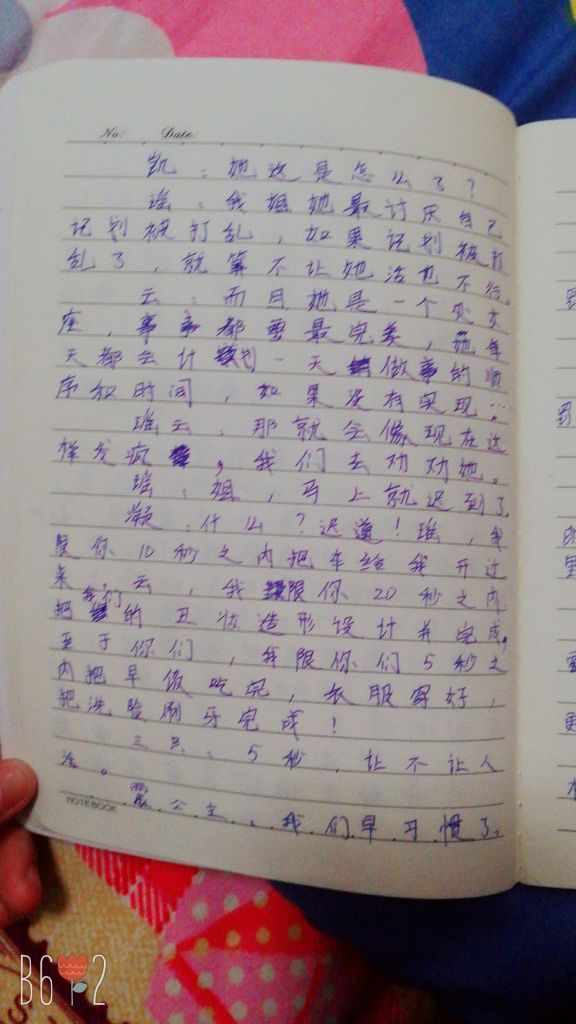 No: Date:
凯：她这是怎么了？
瑶：我姐她最讨厌自己
计划被打乱，如果计划被打
乱了，就算不让她活也不行
云：而且她是一个处女
座，事事都要最完美，她每
天都会计划一天做事的顺
序和时间，如果没有实现……
瑶云：那就会像现在这
样发疯，我们去劝劝她。
瑶：姐，马上就迟到了
凝：什么？迟道！瑶，我
限你10秒之内把车给我开过
来，云，我限你20秒之内
把我们的丑妆造形设计并完成，
至于你们，我限你们5秒之
内把早饭吃完，衣服穿好，
把洗脸刷牙完成！
三只：5秒，让不让人
活。
公主：我们早习惯了。
NOTEBOOK
B612